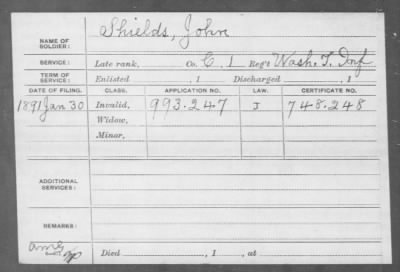 NAME OF SOLDIER: Shields, John
SERVICE: Late rank, Co. C, 1 Reg't Wash. T. Inf
TERM OF SERVICE: Enlisted , 1 Discharged , 1
DATE OF FILING. CLASS. APPLICATION NO. LAW. CERTIFICATE NO.
1891 Jan 30 Invalid, 993.247 J 748.248
Widow,
Minor,
ADDITIONAL SERVICES:
REMARKS:
Died , 1 , at